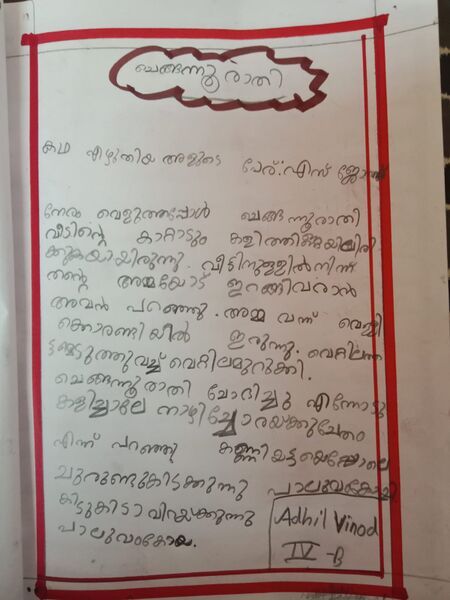 ചെങ്ങന്നൂരാതി
കഥ എഴുതിയ ആളുടെ പേര്: എസ് ജോ
നേരം വെളുത്തപ്പോൾ ചെങ്ങന്നൂരാതി
വീടിന്റെ കാറ്റാടും കളിത്തിണ്ണയിലിരി
ക്കുകയായിരുന്നു. വീട്ടിനുള്ളിൽ നിന്ന്
തന്റെ അമ്മയോട് ഇറങ്ങിവരാൻ
അവൻ പറഞ്ഞു. അമ്മ വന്ന് വെള്ളി
ക്കൊരണ്ടിയിൽ ഇരുന്നു. വെറ്റിലത്ത
ട്ടമെടുത്തുവച്ച് വെറ്റിലമുറുക്കി.
ചെങ്ങന്നൂരാതി ചോദിച്ചു എന്നോടു
കളിച്ചാലേ നാഴിച്ചോരയ്ക്കുചേതം
എന്ന് പറഞ്ഞു കണ്ണിയട്ടയെപ്പോലെ
ചുരുണ്ടുകിടക്കുന്നു പാലുവംകോമ
കിടുകിടാ വിറയ്ക്കുന്നു
പാലുവംകോമ.
Adhil Vinod
IV -B